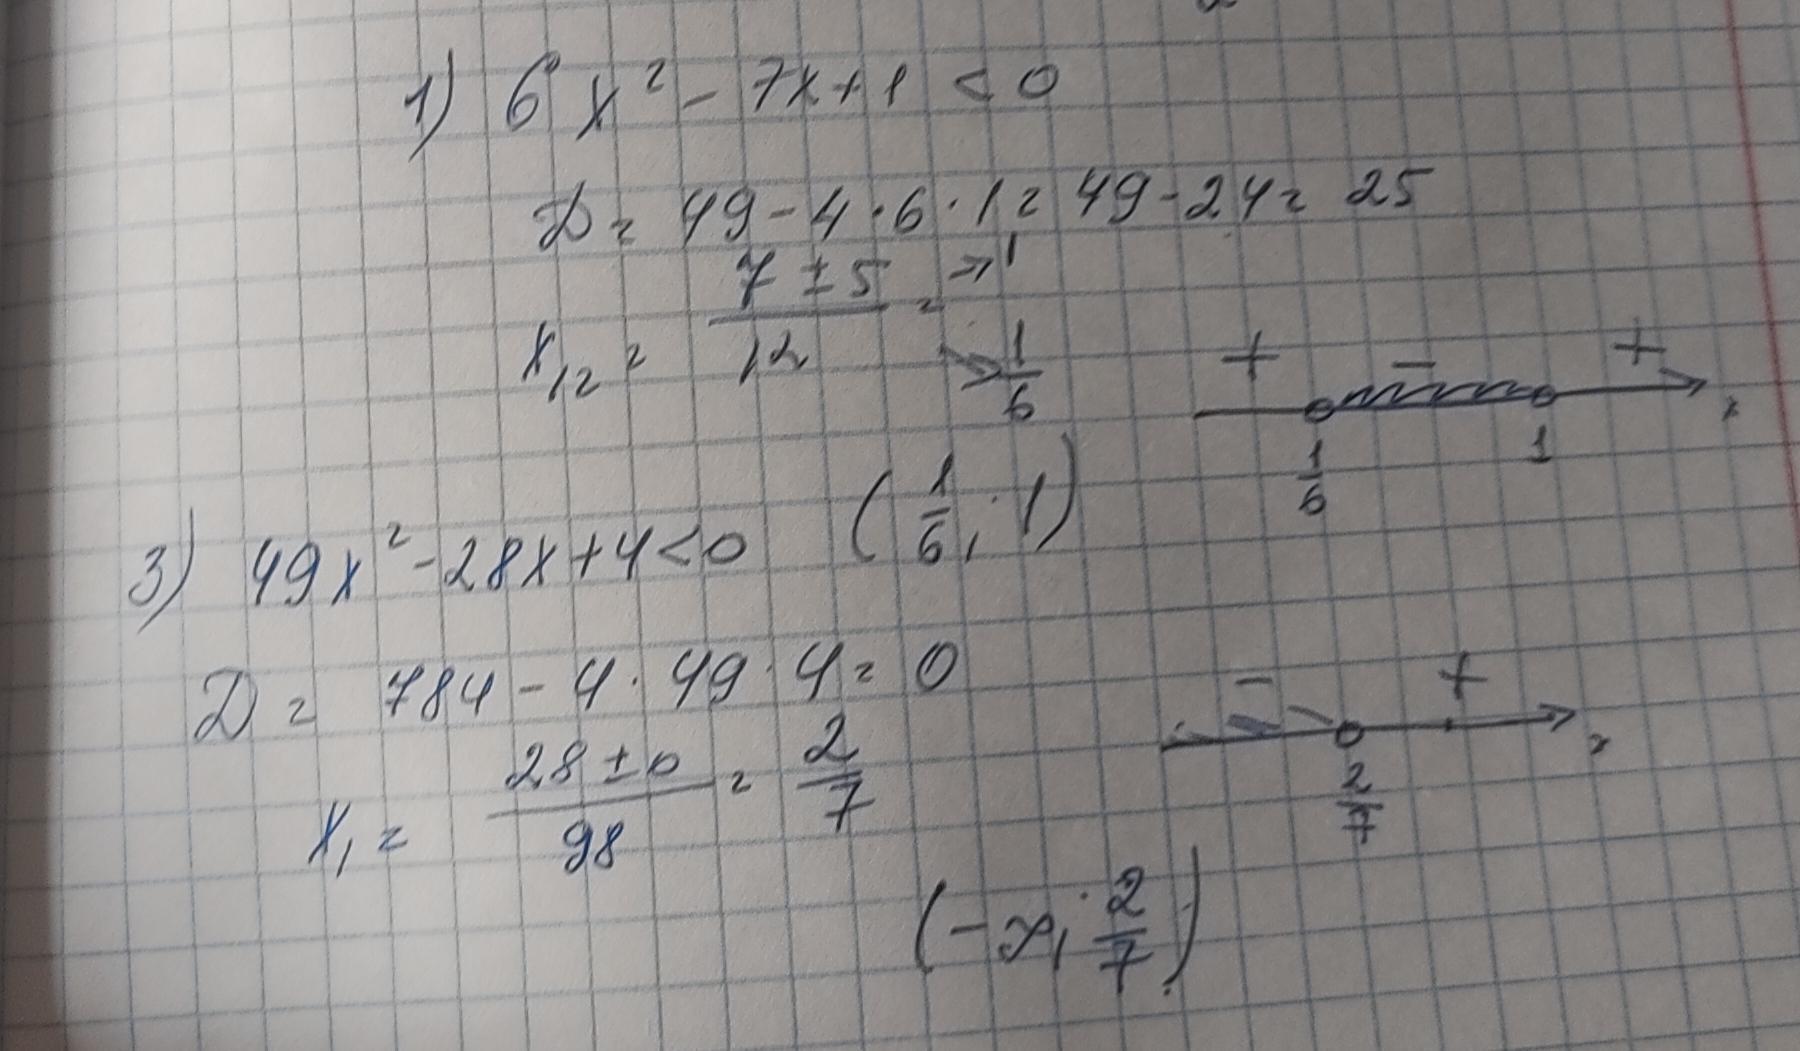 1) 6x² - 7x + 1 < 0
D = 49 - 4 · 6 · 1 = 49 - 24 = 25
x₁₂ = (7 ± 5)/12 = → 1
→ 1/6
+ - +
1/6 1 x
(1/6; 1)
3) 49x² - 28x + 4 < 0
D = 784 - 4 · 49 · 4 = 0
x₁ = (28 ± 0)/98 = 2/7
- +
2/7 x
(-∞; 2/7)